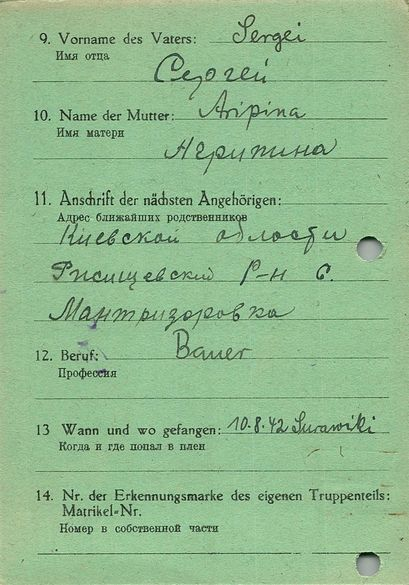 9. Vorname des Vaters: Sergei
Имя отца
Сергей
10. Name der Mutter: Aripina
Имя матери
Агрипина
11. Anschrift der nächsten Angehörigen:
Адрес ближайших родственников
Киевской области
Ржищевский Р-н С.
Мантризоровка
12. Beruf: Bauer
Профессия
13 Wann und wo gefangen: 10.8.42 Surawiki
Когда и где попал в плен
14. Nr. der Erkennungsmarke des eigenen Truppenteils:
Matrikel=Nr.
Номер в собственной части